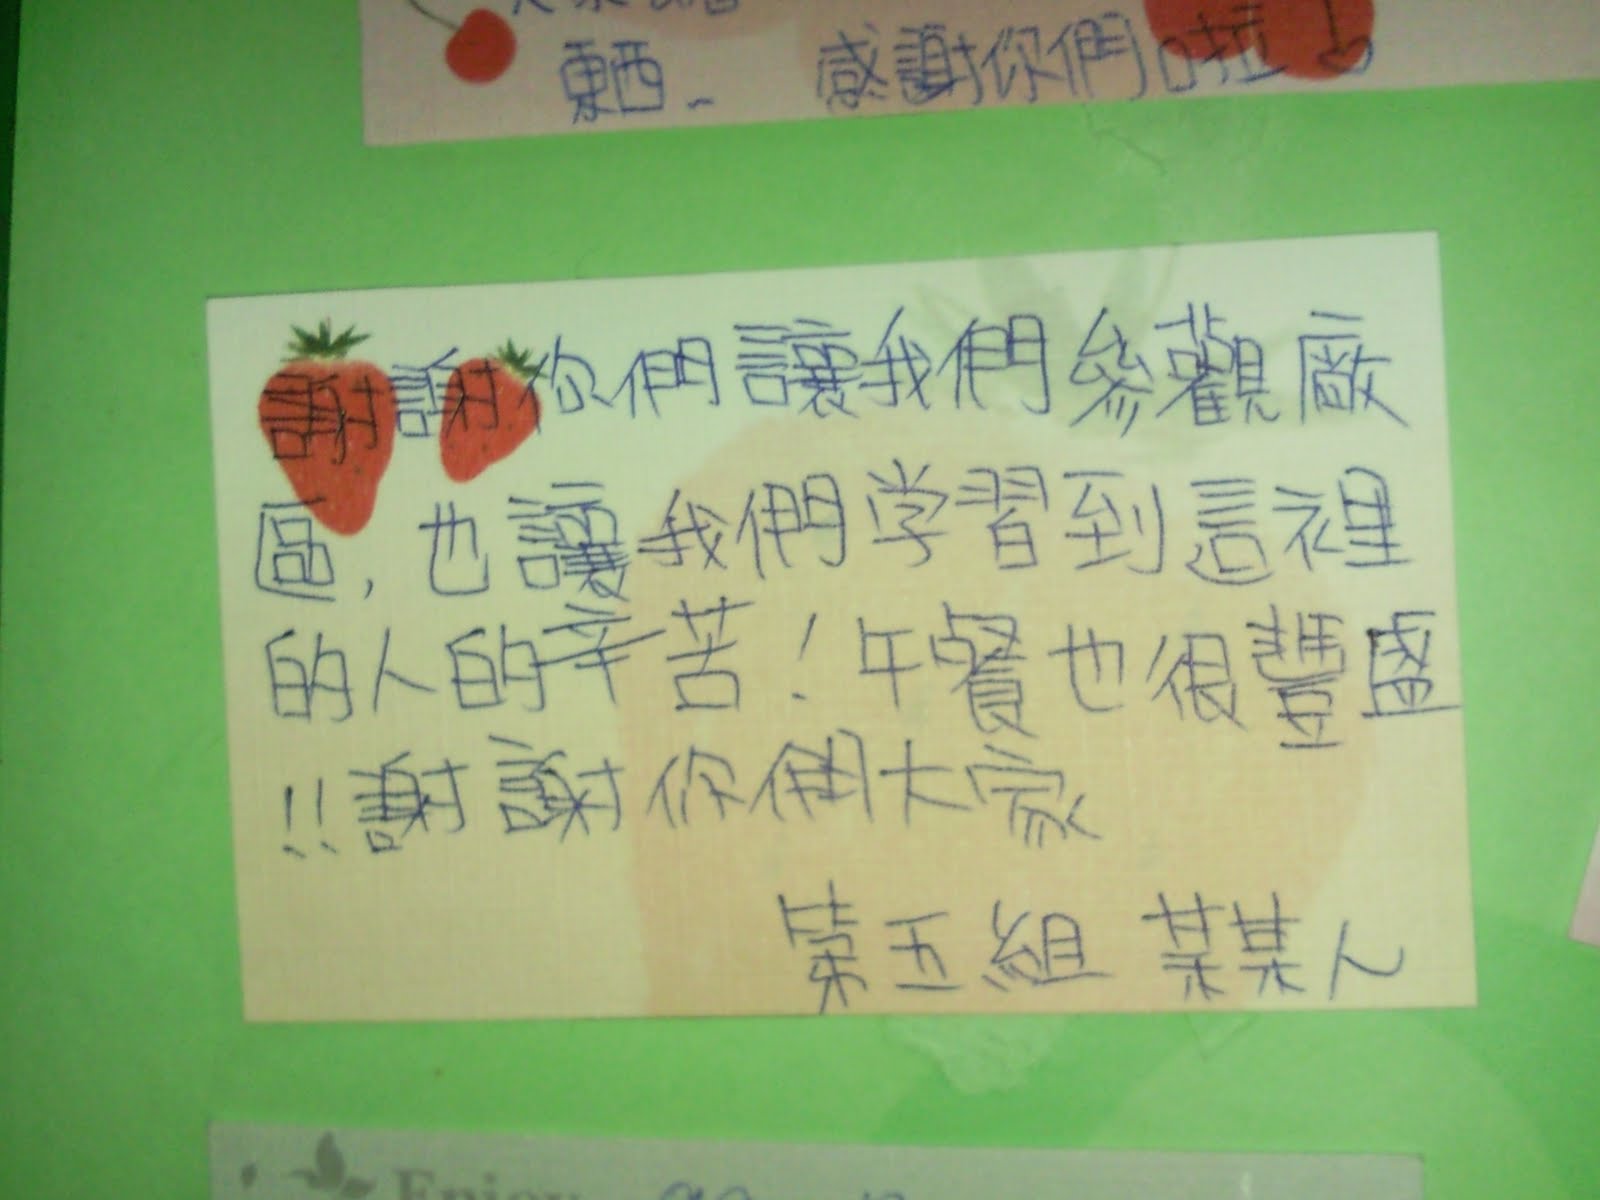 東西~ 感謝你們啦!
謝謝你們讓我們參觀廠
區,也讓我們学習到這裡
的人的辛苦!午餐也很豐盛
!!謝謝你們大家
第五組 某某人
Enjoy